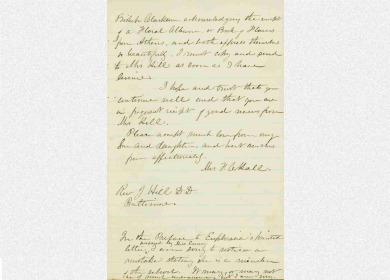 British Museum acknowledging the receipt
of a Floral Album, or Book of Flowers
from Athens, and both express themselves
so beautifully, I must copy and send
to Mrs Hill as soon as I have
leisure.
I hope and trust that you
continue well and that you are
in frequent receipt of good news from
Mrs Hill.
Please accept much love from my
Son and daughter, and best wishes
from affectionately
Mrs F Hall
Rev. J Hill D.D.
Baltimore.
In the Preface to printed
letters, I am sorry to notice a
mistake stating, she is a member
of the school. It may, or may not